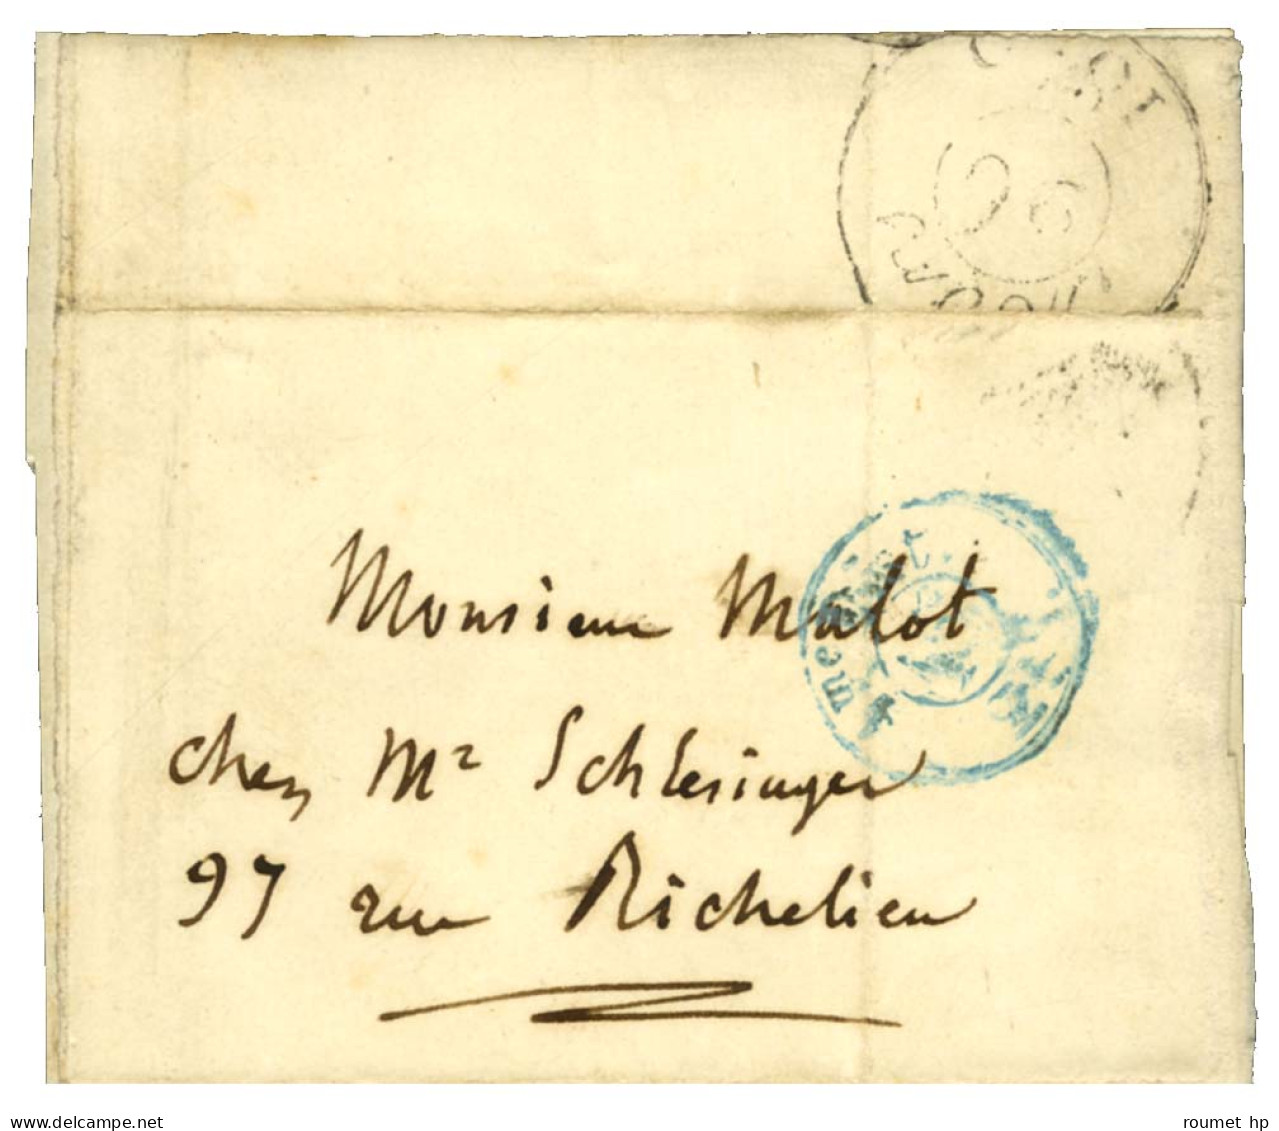 26
Monsieur Malot
chez Mr Schlesinger
97 rue Richelieu
www.delcampe.net
roumet hp